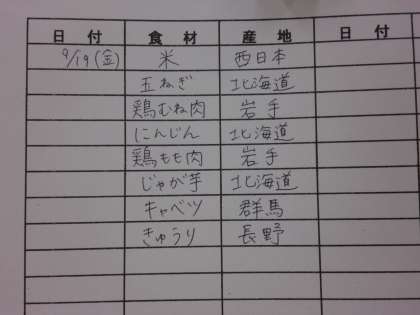 日 付 食 材 産 地 日 付
9/19(金) 米 西日本
玉ねぎ 北海道
鶏むね肉 岩手
にんじん 北海道
鶏もも肉 岩手
じゃが芋 北海道
キャベツ 群馬
きゅうり 長野